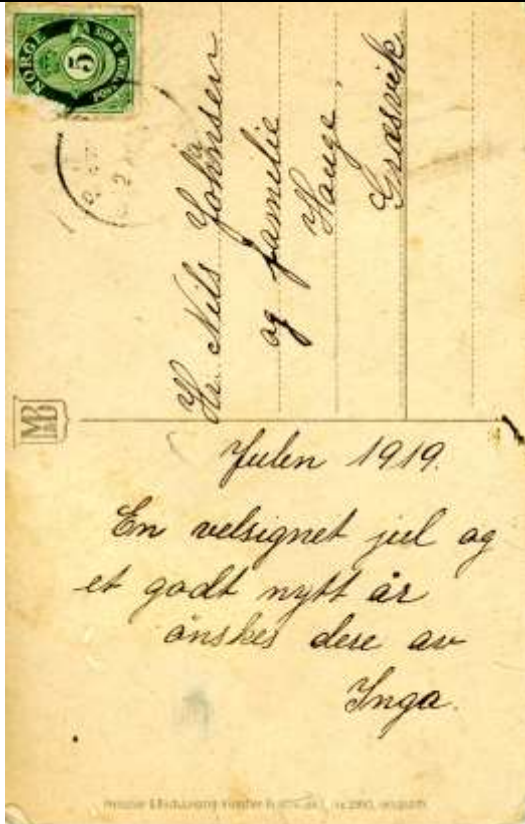 NORGE
5
POST
Hr. Nils Johnsen
og familie
Hauge,
Græsvik
MB
Julen 1919.
En velsignet jul og
et godt nytt år
ønskes dere av
Inga.